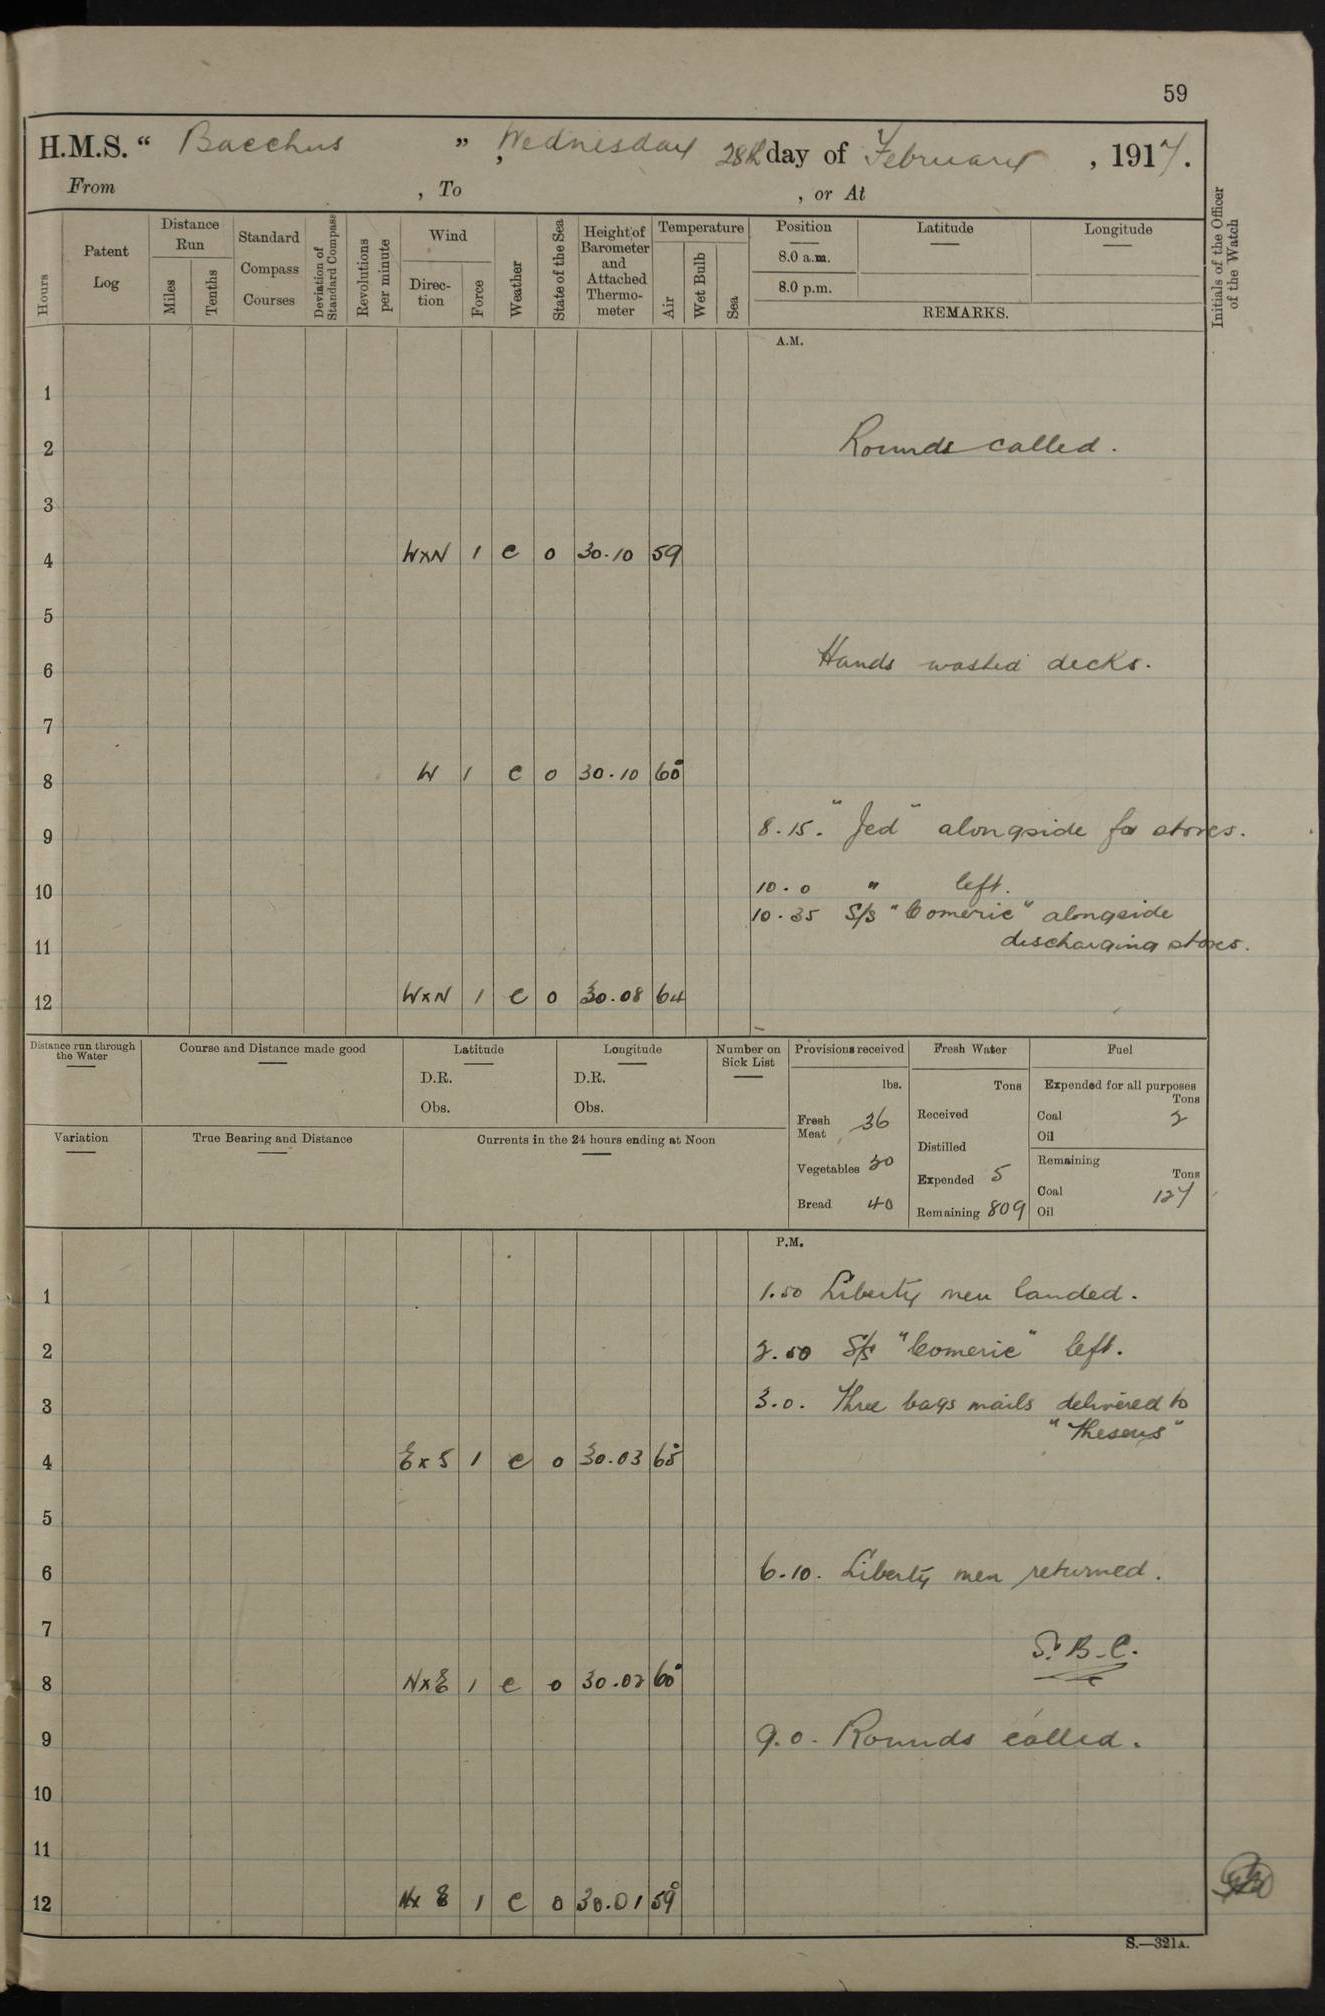 59
H.M.S. “ Bacchus ” , Wednesday 28th day of February , 1917.
From , To , or At
Hours
Patent Log
Distance Run
Miles
Tenths
Standard Compass Courses
Deviation of Standard Compass
Revolutions per minute
Wind
Direc-tion
Force
Weather
State of the Sea
Height of Barometer and Attached Thermo-meter
Temperature
Air
Wet Bulb
Sea
Position
8.0 a.m.
8.0 p.m.
Latitude
Longitude
REMARKS.
Initials of the Officer of the Watch
A.M.
1
2 Rounds called.
3
4 WxN 1 c 0 30.10 59
5
6 Hands washed decks.
7
8 W 1 c 0 30.10 60°
9 8.15. "Jed" alongside for stores.
10 10.0 " left.
10.35 S/s "Comeric" alongside
11 discharging stores.
12 WxN 1 c 0 30.08 64
Distance run through the Water
Course and Distance made good
Latitude
D.R.
Obs.
Longitude
D.R.
Obs.
Number on Sick List
Provisions received
lbs.
Fresh Meat 36
Vegetables 30
Bread 40
Fresh Water
Tons
Received
Distilled
Expended 5
Remaining 809
Fuel
Expended for all purposes
Tons
Coal 2
Oil
Remaining
Tons
Coal 127
Oil
Variation
True Bearing and Distance
Currents in the 24 hours ending at Noon
P.M.
1 1.50 Liberty men landed.
2 2.50 S/s "Comeric" left.
3 3.0. Three bags mails delivered to
"Theseus"
4 ExS 1 c 0 30.03 65°
5
6 6.10. Liberty men returned.
7 S.B.C.
8 NxE 1 c 0 30.02 60°
9 9.0. Rounds called.
10
11
12 NxE 1 c 0 30.01 59°
S.—321A.